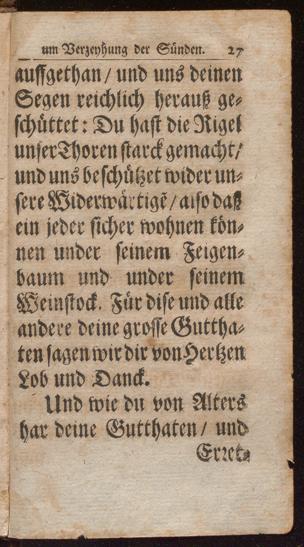 um Verzeyhung der Sünden. 27
auffgethan / und uns deinen
Segen reichlich herauß ge-
schüttet: Du hast die Rigel
unser Thoren starck gemacht/
und uns beschützet wider un-
sere Widerwärtigẽ / also daß
ein jeder sicher wohnen kön-
nen under seinem Feigen-
baum und under seinem
Weinstock. Für dise und alle
andere deine grosse Guttha-
ten sagen wir dir von Hertzen
Lob und Danck.
Und wie du von Alters
har deine Gutthaten / und
Erret-